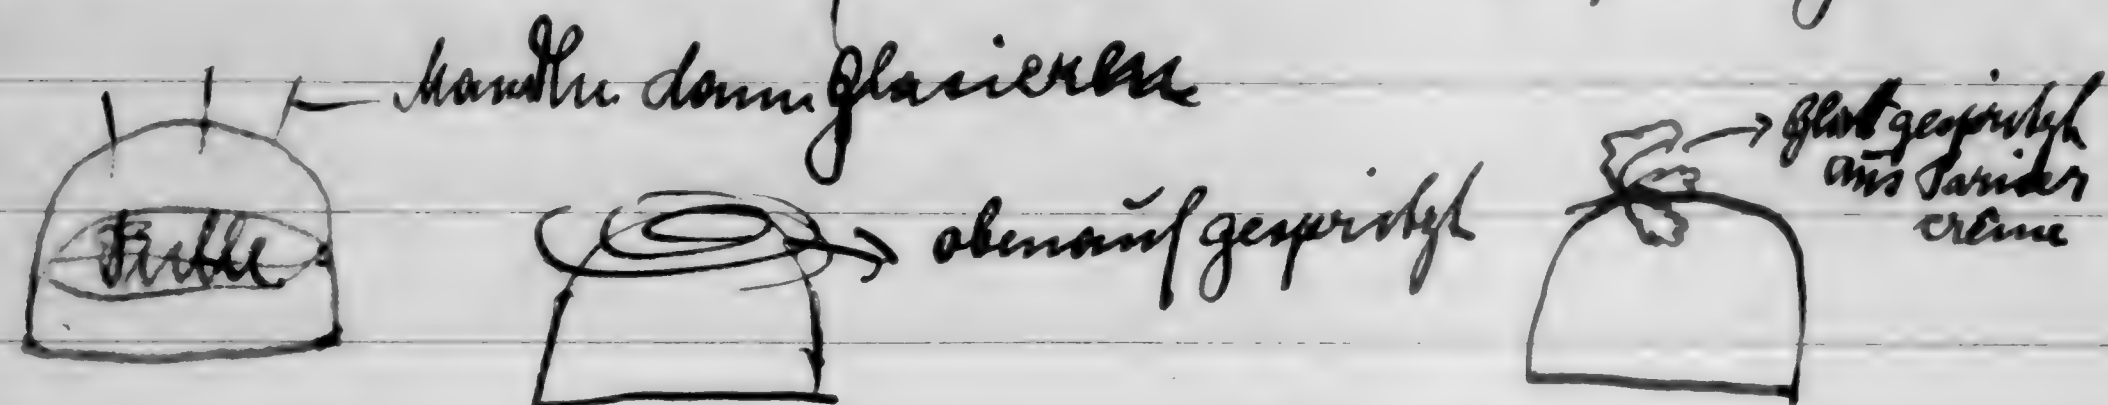 Mandln dann glasieren
Fülle
obenauf gespritzt
Blatt gespritzt
aus Pariser
creme